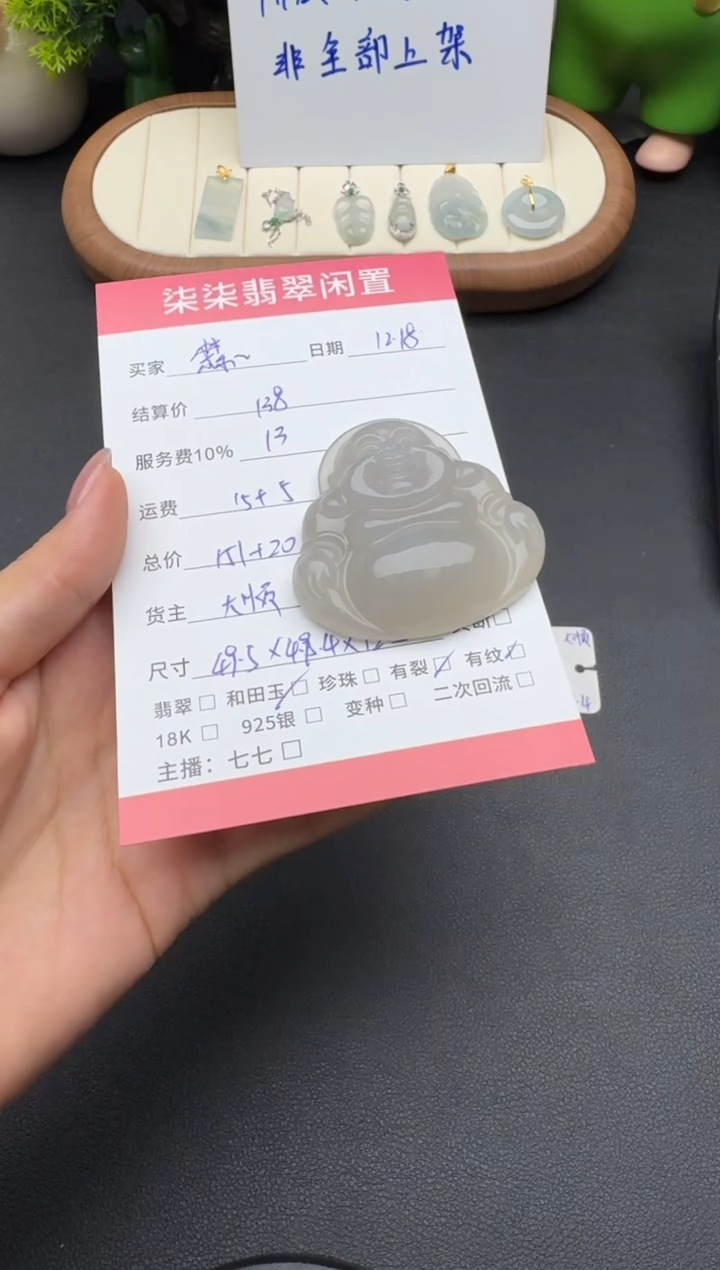 非全部上架
柒柒翡翠闲置
买家 日期 12.18
结算价 138
服务费10% 13
运费 15+5
总价 151+20
货主 大顺
尺寸 49.5×49.4×
翡翠 和田玉 珍珠 有裂 有纹
18K 925银 变种 二次回流
主播：七七
大顺